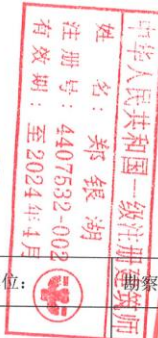 中华人民共和国一级注册建筑师
姓 名：郑银湖
注册号：4407632-002
有效期：至2024年4月
位：
勘察